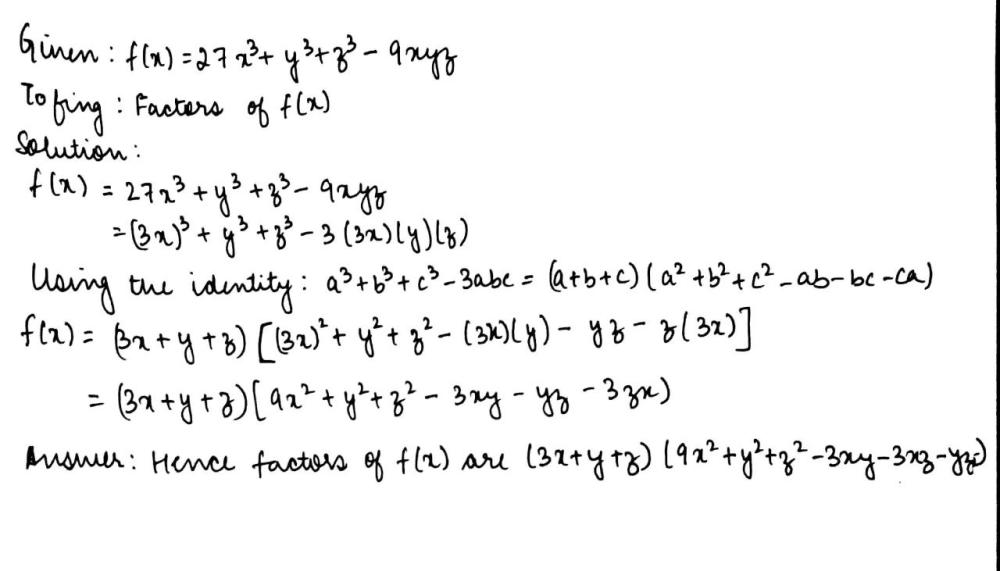 Given : f(x) = 27x³ + y³ + z³ - 9xyz
To fing : Factors of f(x)
Solution :
f(x) = 27x³ + y³ + z³ - 9xyz
= (3x)³ + y³ + z³ - 3(3x)(y)(z)
Using the identity : a³ + b³ + c³ - 3abc = (a+b+c)(a² + b² + c² - ab - bc - ca)
f(x) = (3x + y + z) [(3x)² + y² + z² - (3x)(y) - yz - z(3x)]
= (3x + y + z)(9x² + y² + z² - 3xy - yz - 3zx)
Answer : Hence factors of f(x) are (3x+y+z) (9x² + y² + z² - 3xy - 3xz - yz)